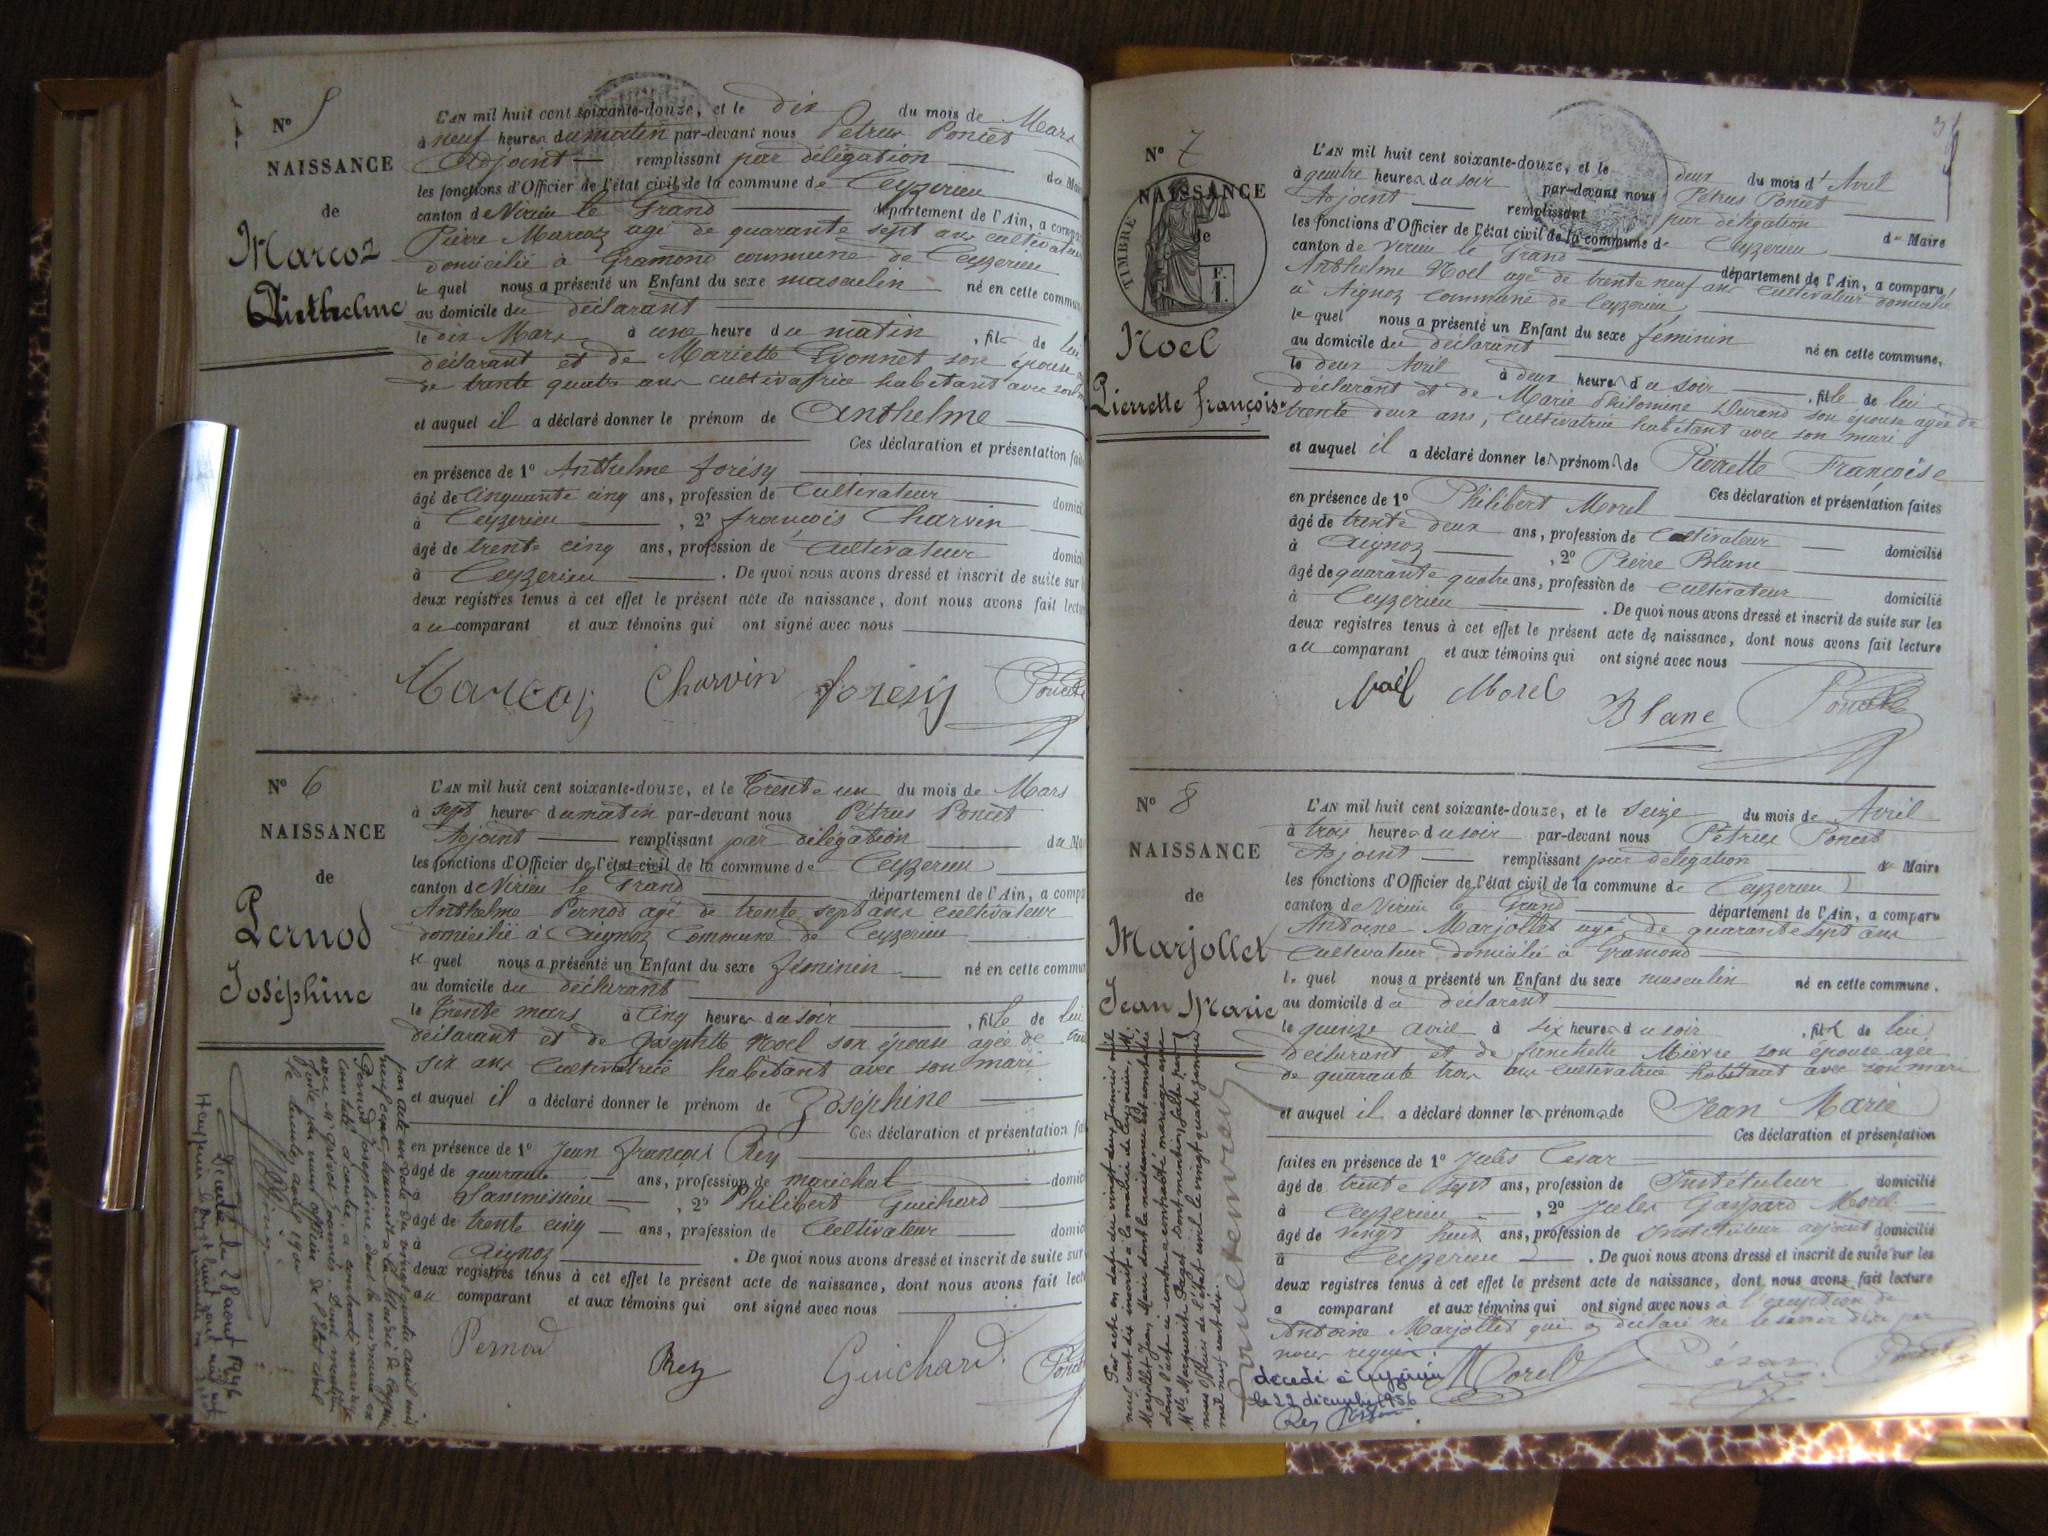 N° 5
NAISSANCE
de
Marcoz
Anthelme
L'AN mil huit cent soixante-douze, et le dix du mois de Mars
à neuf heures du matin par-devant nous Petrus Poncet
Adjoint remplissant par délégation du Mai
les fonctions d'Officier de l'état civil de la commune de Ceyzerieu
canton de Virieu le Grand département de l'Ain, a compa
Pierre Marcoz agé de quarante sept ans cultivateur
domicilié à Gramond commune de Ceyzerieu
le quel nous a présenté un Enfant du sexe masculin né en cette commun
au domicile du déclarant
le dix Mars à une heure du matin, fils de lui
déclarant et de Mariette Lyonnet son épouse
de trente quatre ans cultivatrice habitant avec son
et auquel il a déclaré donner le prénom de Anthelme
Ces déclaration et présentation fai
en présence de 1° Anthelme forésy
âgé de Cinquante cinq ans, profession de Cultivateur domicil
à Ceyzerieu, 2° françois Charvin
âgé de trente cinq ans, profession de Cultivateur domici
à Ceyzerieu. De quoi nous avons dressé et inscrit de suite sur
deux registres tenus à cet effet le présent acte de naissance, dont nous avons fait lectu
au comparant et aux témoins qui ont signé avec nous
Marcoz Charvin forésy Poncet
N° 6
NAISSANCE
de
Pernod
Joséphine
L'AN mil huit cent soixante-douze, et le Trente un du mois de Mars
à sept heures du matin par-devant nous Pétrus Poncet
Adjoint remplissant par délégation du Ma
les fonctions d'Officier de l'état civil de la commune de Ceyzerieu
canton de Virieu le Grand département de l'Ain, a compa
Anthelme Pernod agé de trente sept ans cultivateur
domicilié à Aignoz Commune de Ceyzerieu
le quel nous a présenté un Enfant du sexe féminin né en cette commun
au domicile du déclarant
le Trente mars à Cinq heures du soir, fille de lui
déclarant et de Josephte Noel son épouse agée de
six ans Cultivatrice habitant avec son mari
et auquel il a déclaré donner le prénom de Joséphine
Ces déclaration et présentation fai
en présence de 1° Jean françois Rey
âgé de quarante ans, profession de maréchal domici
à, 2° Philibert Guichard
âgé de trente cinq ans, profession de Cultivateur domici
à Aignoz. De quoi nous avons dressé et inscrit de suite sur
deux registres tenus à cet effet le présent acte de naissance, dont nous avons fait lect
au comparant et aux témoins qui ont signé avec nous
Pernod Rey Guichard Poncet
par acte en date du vingt quatre avril mil
neuf cent
Pernod Joséphine, dont la naissance est
constatée ci contre, a contracté mariage
Décédée le 2 août 1946
N° 7
NAISSANCE
de
TIMBRE
F.
1.
Noel
Pierrette françoise
L'AN mil huit cent soixante-douze, et le deux du mois d'Avril
à quatre heures du soir par-devant nous Pétrus Poncet
Adjoint remplissant par délégation de Maire
les fonctions d'Officier de l'état civil de la commune de Ceyzerieu
canton de Virieu le Grand département de l'Ain, a comparu
Anthelme Noel agé de trente neuf ans Cultivateur domicilié
à Aignoz Commune de Ceyzerieu
le quel nous a présenté un Enfant du sexe féminin né en cette commune,
au domicile du déclarant
le deux Avril à deux heures du soir, fille de lui
déclarant et de Marie Philomène Durand son épouse agée de
trente deux ans, Cultivatrice habitant avec son mari
et auquel il a déclaré donner les prénoms de Pierrette Françoise
Ces déclaration et présentation faites
en présence de 1° Philibert Morel
âgé de trente deux ans, profession de Cultivateur domicilié
à Aignoz, 2° Pierre Blanc
âgé de quarante quatre ans, profession de Cultivateur domicilié
à Ceyzerieu. De quoi nous avons dressé et inscrit de suite sur les
deux registres tenus à cet effet le présent acte de naissance, dont nous avons fait lecture
au comparant et aux témoins qui ont signé avec nous
Noël Morel Blanc Poncet
N° 8
NAISSANCE
de
Marjollet
Jean Marie
L'AN mil huit cent soixante-douze, et le seize du mois de Avril
à trois heures du soir par-devant nous Pétrus Poncet
Adjoint remplissant par délégation de Maire
les fonctions d'Officier de l'état civil de la commune de Ceyzerieu
canton de Virieu le Grand département de l'Ain, a comparu
Antoine Marjollet agé de quarante sept ans
Cultivateur domicilié à Gramond
le quel nous a présenté un Enfant du sexe masculin né en cette commune.
au domicile du déclarant
le quinze avril à six heures du soir, fils de lui
déclarant et de fanchette Mièvre son épouse agée
de quarante trois ans cultivatrice habitant avec son mari
et auquel il a déclaré donner les prénoms de Jean Marie
Ces déclaration et présentation
faites en présence de 1° Jules César
âgé de trente sept ans, profession de Instituteur domicilié
à Ceyzerieu, 2° Jules Gaspard Morel
âgé de vingt huit ans, profession de Instituteur adjoint domicilié
à Ceyzerieu. De quoi nous avons dressé et inscrit de suite sur les
deux registres tenus à cet effet le présent acte de naissance, dont nous avons fait lecture
a comparant et aux témoins qui ont signé avec nous à l'exception de
Antoine Marjollet qui a déclaré ne le savoir de ce par
nous requis
Morel César Poncet
Par acte en date du vingt deux Janvier mil
neuf cent dix inscrit à la mairie de Ceyzerieu, M.
Marjollet Jean Marie dont la naissance est constatée
dans l'acte ci-contre a contracté mariage avec
Melle Marguerite Paget. Dont mention faite par
nous Officier de l'état civil le vingt quatre janvier
mil neuf cent dix.
décédé à Ceyzérieu
le 22 décembre 1956